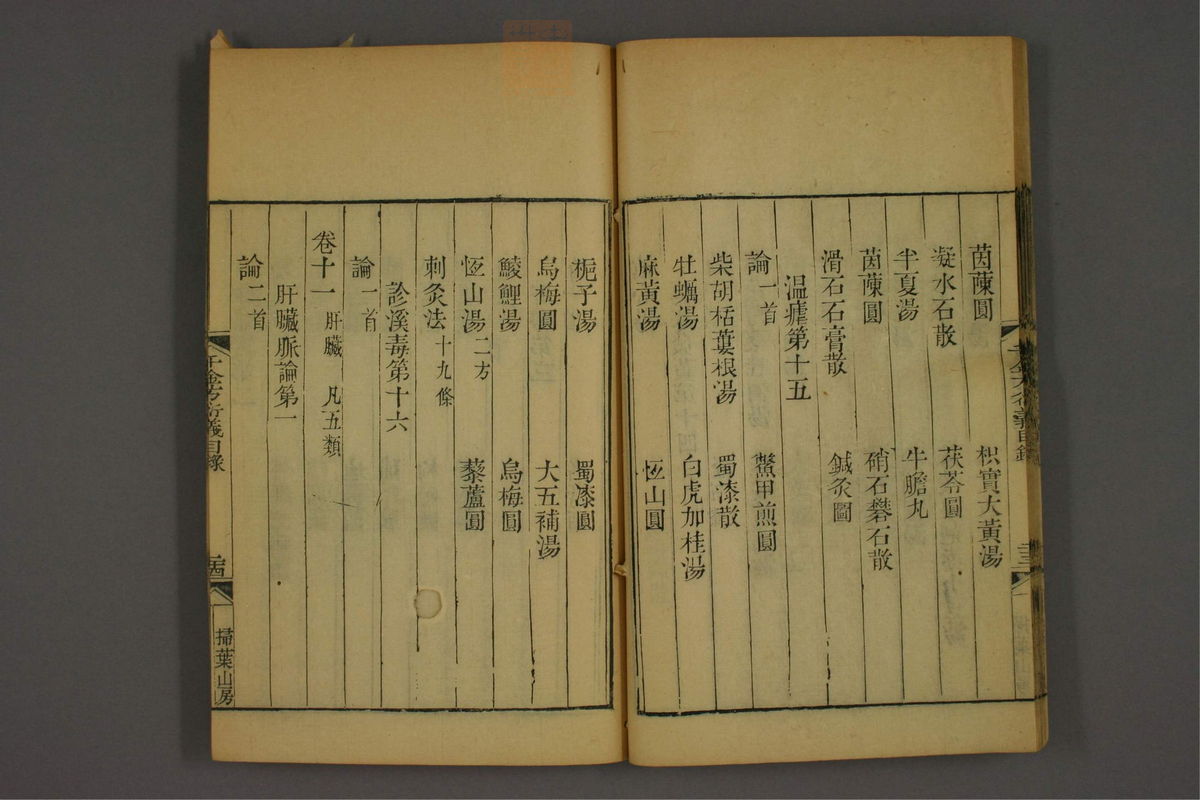 茵蔯圓 枳實大黃湯
凝水石散 茯苓圓
半夏湯 牛膽丸
茵蔯圓 硝石礬石散
滑石石膏散 鍼灸圖
温瘧第十五
論一首 鱉甲煎圓
柴胡栝蔞根湯 蜀漆散
牡蠣湯 白虎加桂湯
麻黃湯 恆山圓
梔子湯 蜀漆圓
烏梅圓 大五補湯
鯪鯉湯 烏梅圓
恆山湯二方 藜蘆圓
刺灸法十九條
診溪毒第十六
論一首
卷十一 肝臟 凡五類
肝臟脈論第一
論二首
千金方衍義目錄
掃葉山房